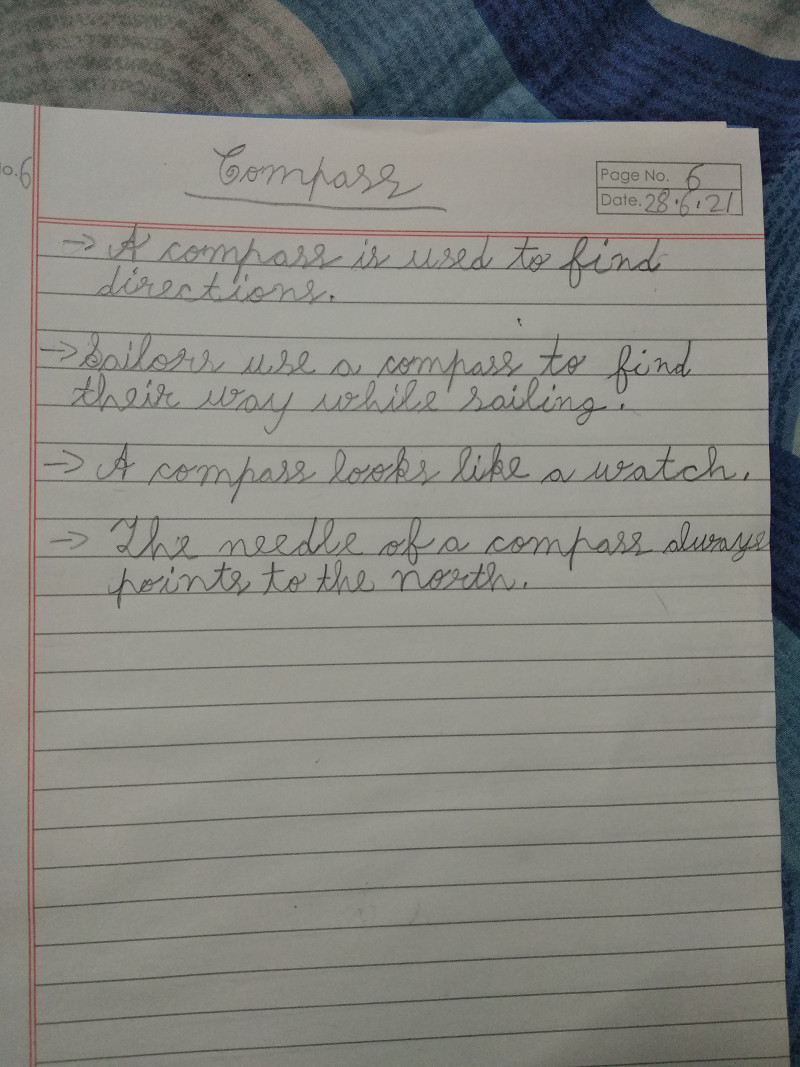 o.6
Compass
Page No. 6
Date. 28.6.21
→ A compass is used to find
directions.
→ Sailors use a compass to find
their way while sailing.
→ A compass looks like a watch.
→ The needle of a compass always
points to the north.